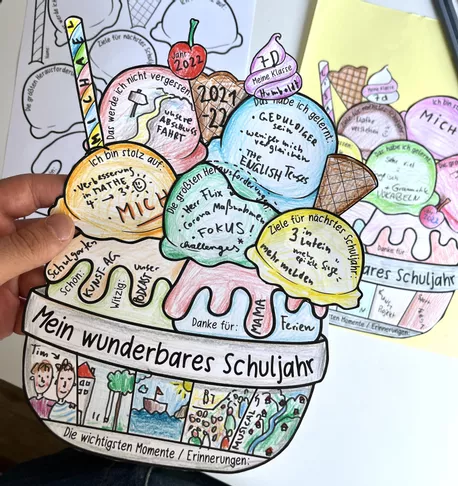 Juni
2022
7D
Meine Klasse
Humboldt
Das werde ich nicht vergessen:
Unsere
ABSCHLUSS
FAHRT
2021
-22
Das habe ich gelernt:
- GEDULDIGER
sein
- weniger mich
vergleichen
- THE
ENGLISH Tenses
Ich bin stolz auf:
- Verbesserung
in MATHE
4 → 3
MICH
Die größten Herausforderungen:
Herr Flix
Corona Maßnahmen
FOKUS!
challenges
Ziele für nächstes Schuljahr:
3 in
Latein
mehr
epische Siege
mehr melden
Schulgarten
Schön:
KUNST-AG
Witzig:
unser
PODCAST
Danke für:
MAMA
Ferien
Mein wunderbares Schuljahr
Tim
B7
MUSICAL
Die wichtigsten Momente / Erinnerungen:
Ziele für nächstes Schuljahr
Die größten Herausforderungen
Meine Klasse
7d
MICH
Das habe ich gelernt:
Grammatik
VOKABELN
Danke für:
bares Schuljahr
sten Momente / Erinnerungen: